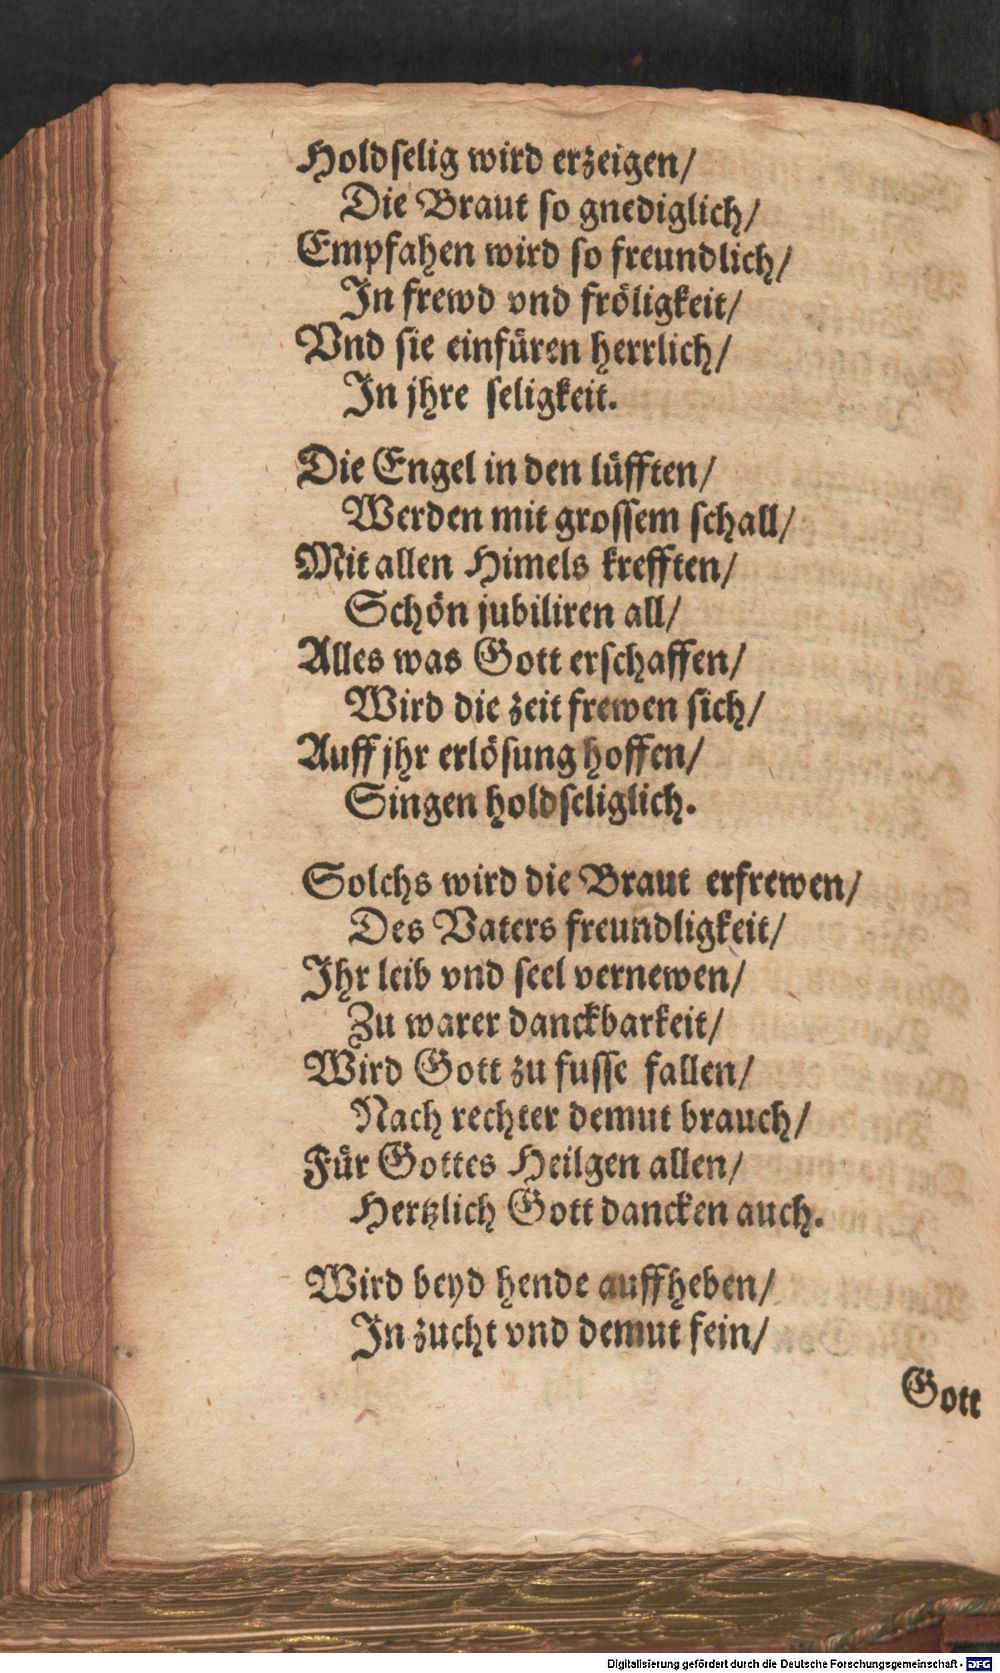 Holdſelig wird erzeigen/
Die Braut ſo gnediglich/
Empfahen wird ſo freundlich/
In frewd vnd fröligkeit/
Vnd ſie einfüren herrlich/
In jhre ſeligkeit.
Die Engel in den lüfften/
Werden mit groſſem ſchall/
Mit allen Himels krefften/
Schön jubiliren all/
Alles was Gott erſchaffen/
Wird die zeit frewen ſich/
Auff jhr erlöſung hoffen/
Singen holdſeliglich.
Solchs wird die Braut erfrewen/
Des Vaters freundligkeit/
Ihr leib vnd ſeel vernewen/
Zu warer danckbarkeit/
Wird Gott zu fuſſe fallen/
Nach rechter demut brauch/
Für Gottes Heilgen allen/
Hertzlich Gott dancken auch.
Wird beyd hende auffheben/
In zucht vnd demut fein/
Gott
Digitalisierung gefördert durch die Deutsche Forschungsgemeinschaft - DFG